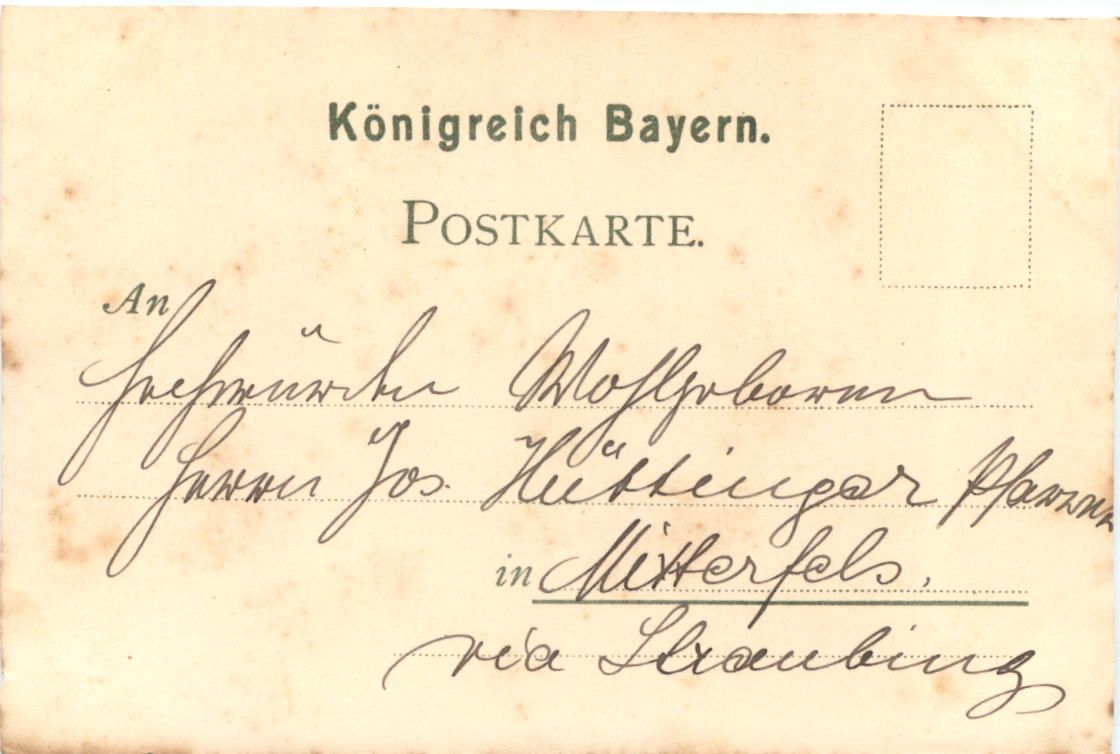 Königreich Bayern.
POSTKARTE.
An
Hochwürden Wohlgeboren
Herrn Jos. Hüttinger Pfarrer
in Mitterfels.
via Straubing